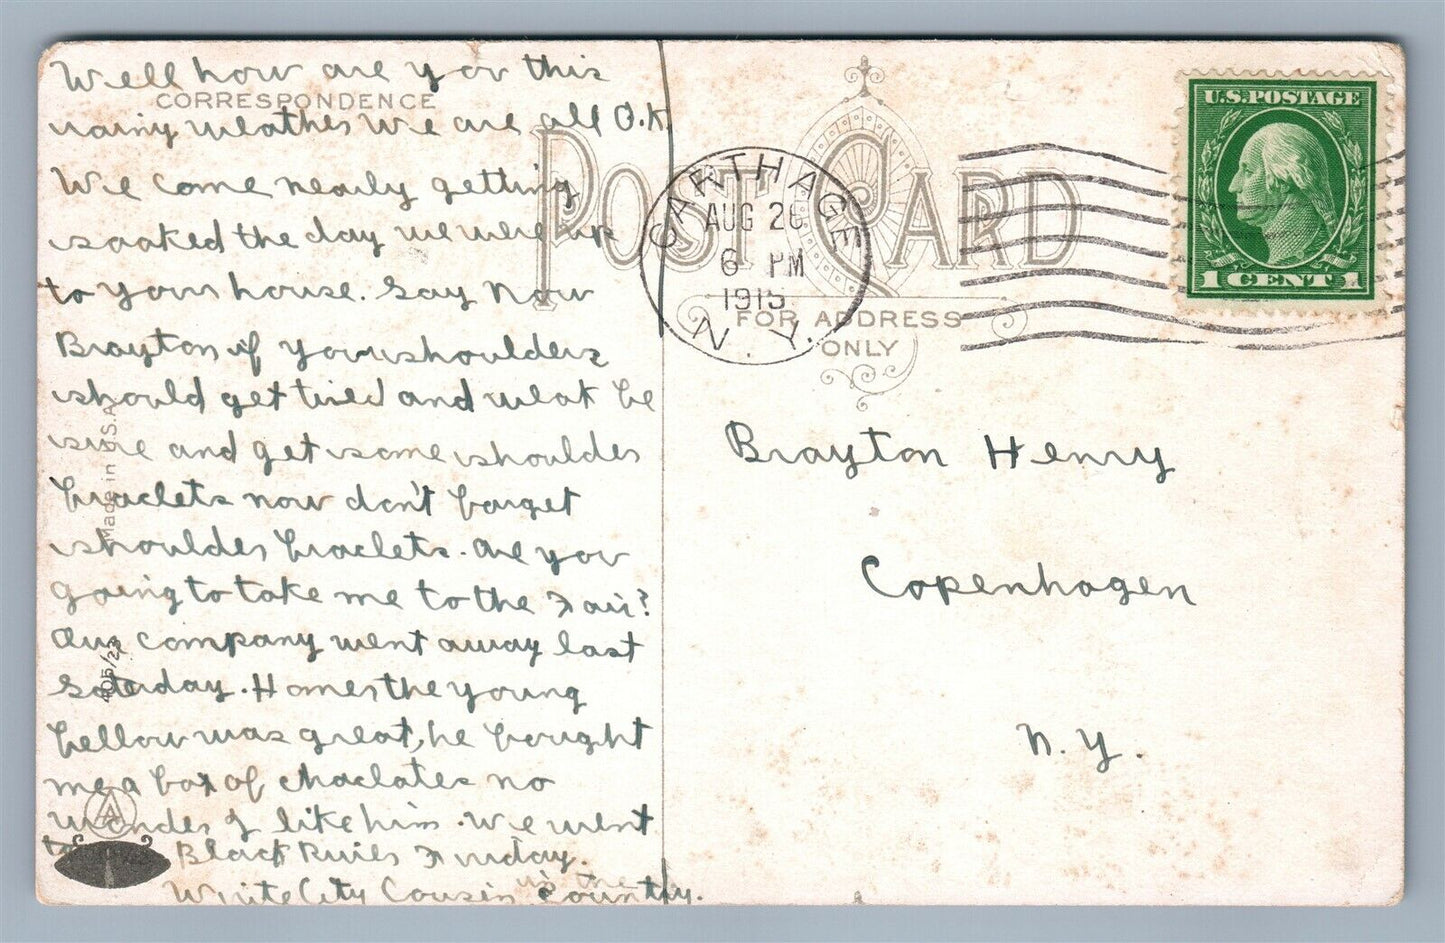 Well how are you this
CORRESPONDENCE
rainy weather We are all O.K.
We came nearly getting
soaked the day we were up
to your house. Say Now
Brayton if your shoulders
should get tired and weak be
sure and get some shoulder
braclets now don't forget
shoulder braclets. are you
going to take me to the Fair?
Our company went away last
Saterday. Homer the young
fellow was great, he bought
me a box of choclates no
wonder I like him. We went
to Black River Friday.
White City Cousin in the Country.
Made in U.S.A.
405/23
POST CARD
FOR ADDRESS
ONLY
CARTHAGE
AUG 26
6 PM
1915
N.Y.
U.S. POSTAGE
1 CENT 1
Brayton Henry
Copenhagen
N.Y.